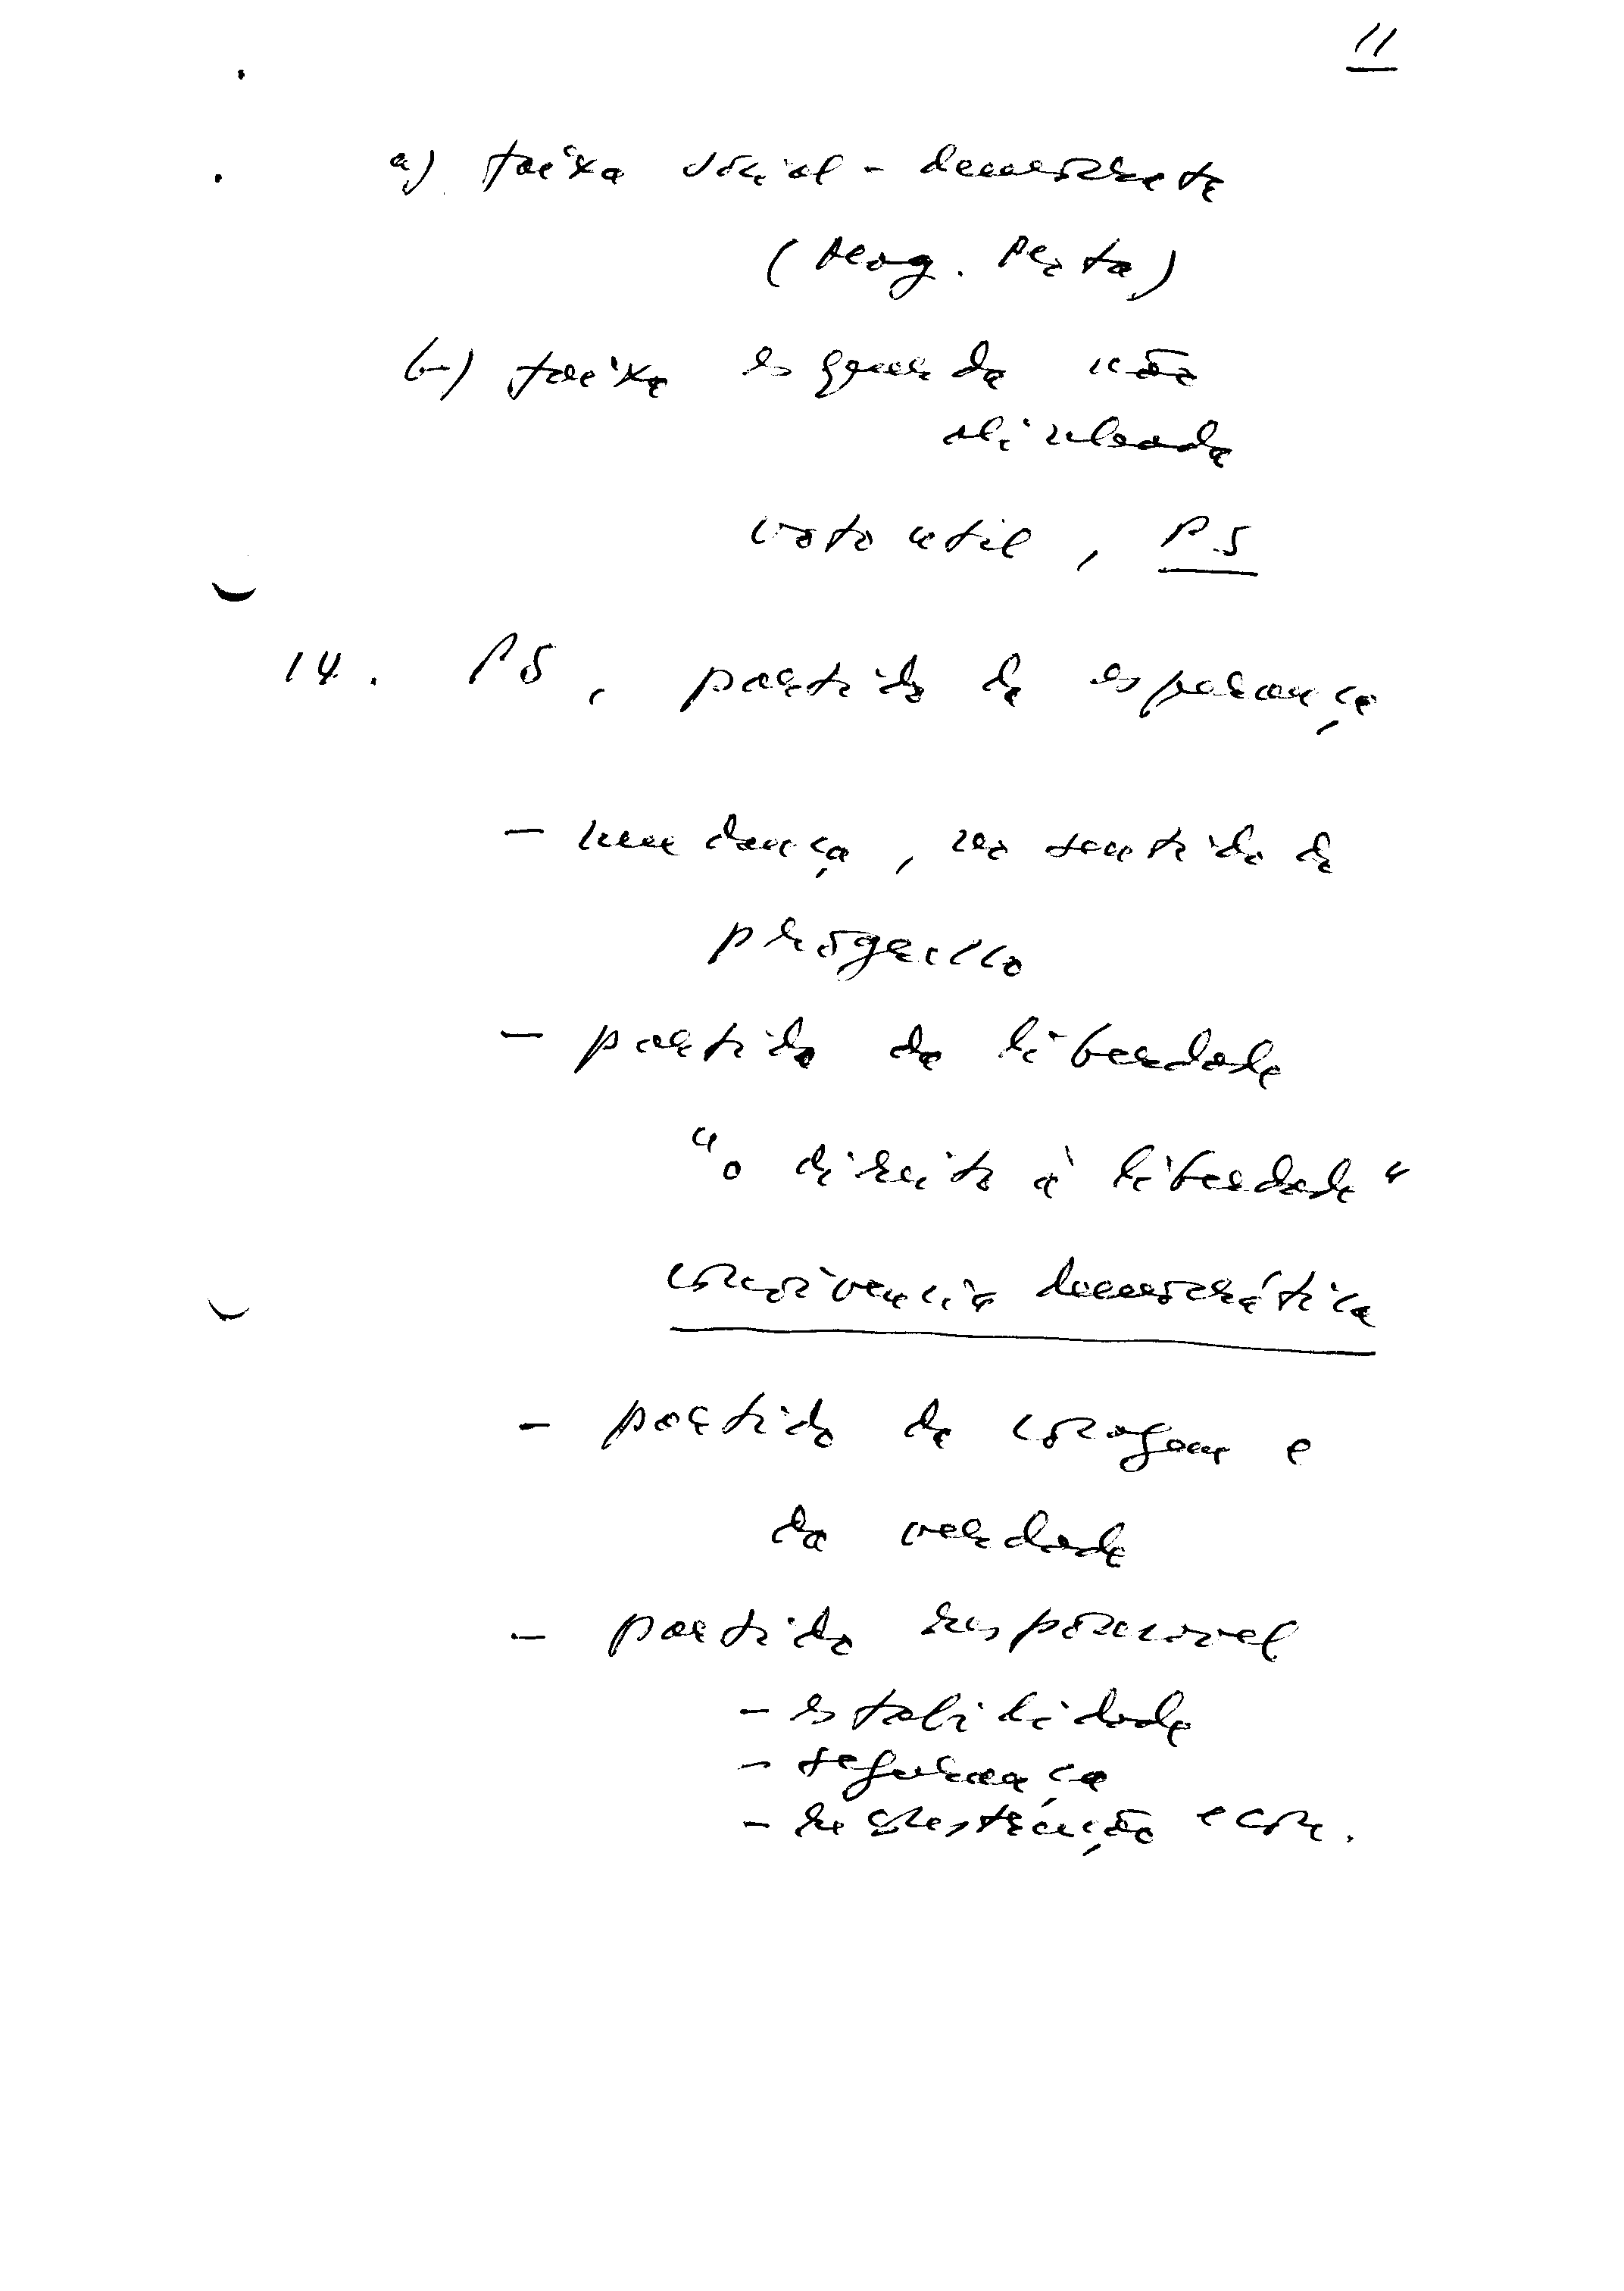 11
a) faixa social-democrata
(Mag. Mota)
b) faixa esquerda não
alinhada
voto util, PS
14. PS, partido da esperança
- mudança, no sentido do
progresso
- partido da liberdade
"o direito à liberdade"
convivencia democrática
- partido da coragem e
da verdade
- partido responsavel
- estabilidade
- segurança
- reconstrução econ.